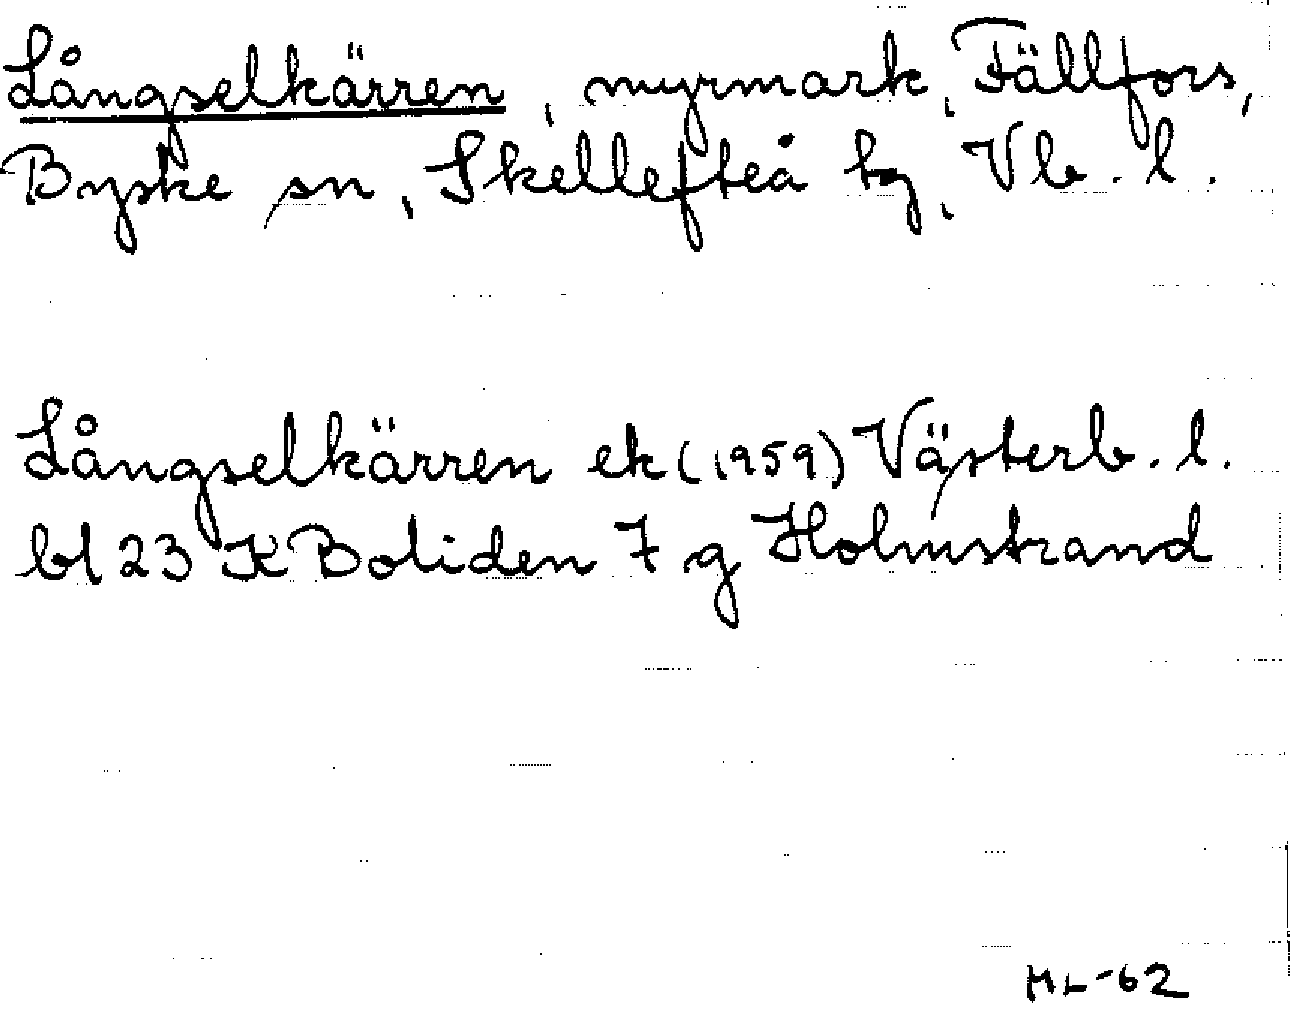 Långselkärren, myrmark, Fällfors,
Byske sn, Skellefteå tg, Vb. l.
Långselkärren ek (1959) Västerb. l.
bl 23 K Boliden 7 g Holmstrand
HL-62